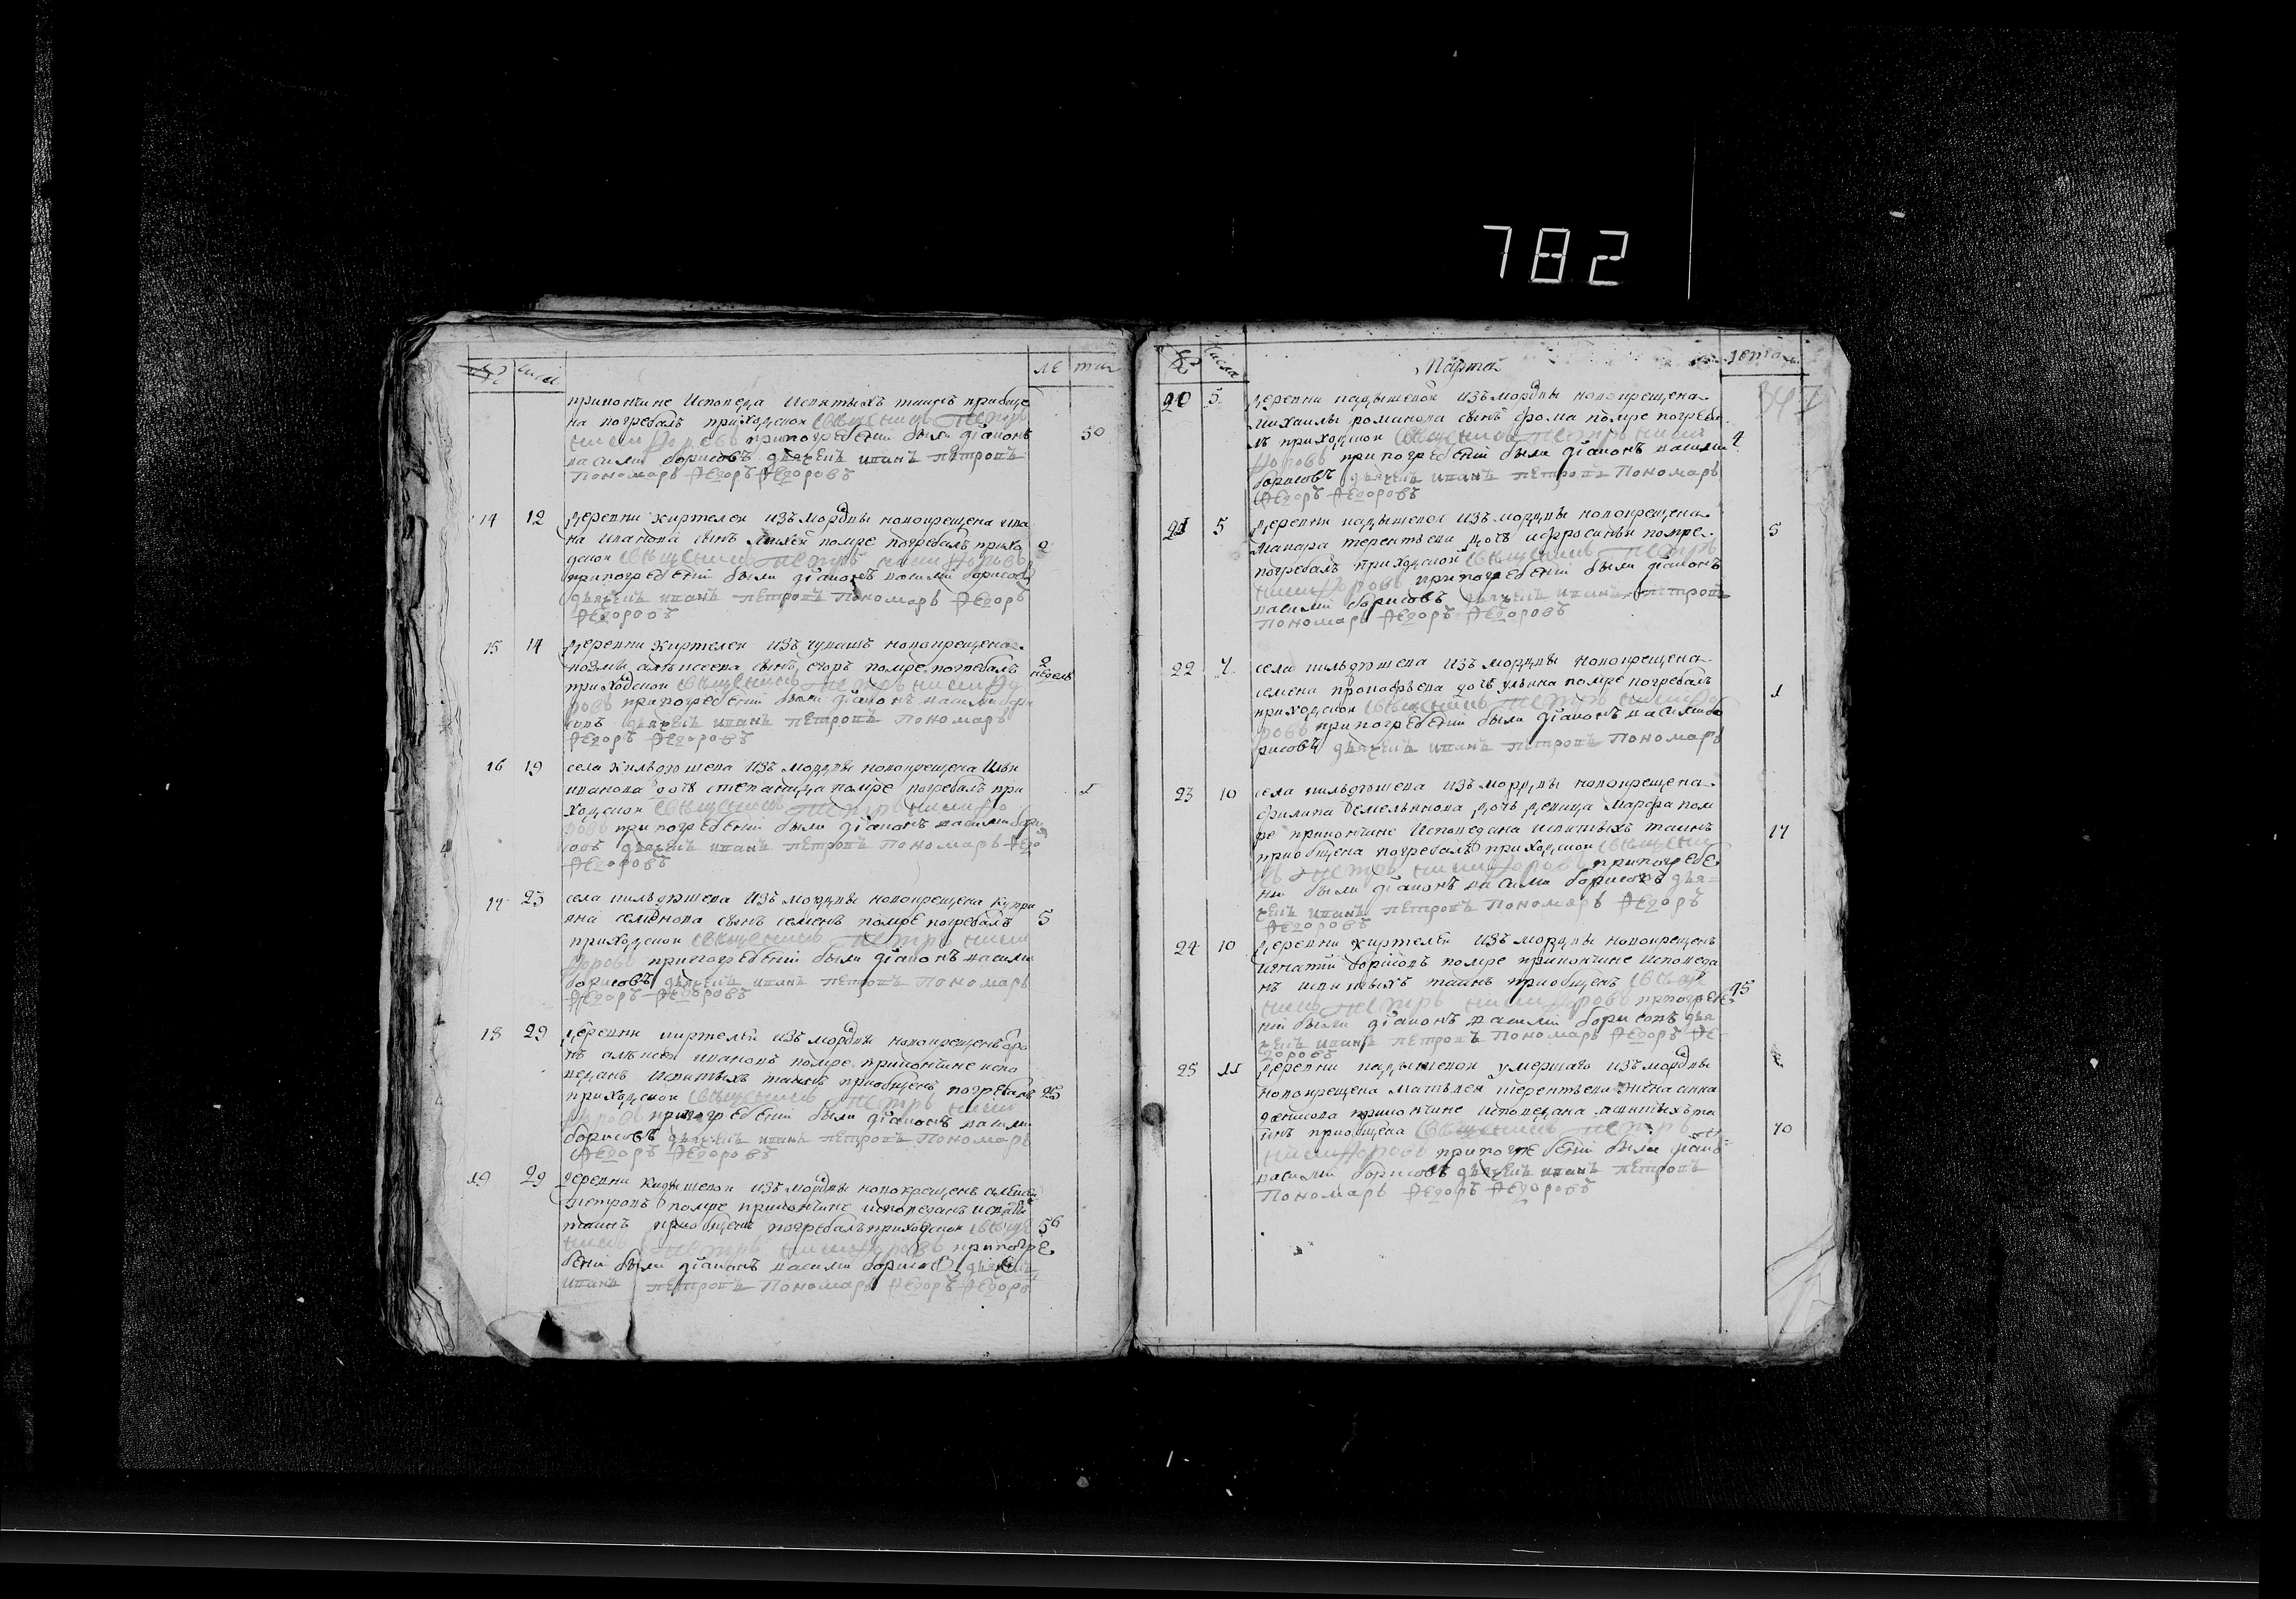 782
числа
ле
при кончине исповеда и святыхъ таинъ приобще
на погребалъ приходской священникъ Петръ
Никифоровъ при погребении были дiаконъ 50
василий борисовъ дьячекъ иванъ петровъ
пономарь Федоръ Федоровъ
14 12 деревни киртелей изъ мордвы новокрещена ива
на иванова сынъ михей помре погребалъ прихо 2
дской священникъ Петръ Никифоровъ
при погребении были дiаконъ василий борисовъ
дьячекъ иванъ петровъ пономарь Федоръ
Федоровъ
15 14 деревни киртелей изъ чувашъ новокрещена
козмы алексеева сынъ егоръ помре погребалъ 2 недель
приходской священникъ Петръ Никифо
ровъ при погребении были дiаконъ василий бори
совъ дьячекъ иванъ петровъ пономарь
Федоръ Федоровъ
16 19 села кильдюшева изъ мордвы новокрещена ильи
иванова дочь степанида помре погребалъ при 1
ходской священникъ Петръ Никифо
ровъ при погребении были дiаконъ василий бори
совъ дьячекъ иванъ петровъ пономарь Федо
Федоровъ
17 23 села кильдюшева изъ мордвы новокрещена купри
яна семенова сынъ семенъ помре погребалъ 5
приходской священникъ Петръ Никифоровъ
при погребении были дiаконъ василий
борисовъ дьячекъ иванъ петровъ пономарь
Федоръ Федоровъ
18 29 деревни киртелей изъ мордвы новокрещенъ
алексей ивановъ помре при кончине испо
веданъ и святыхъ таинъ приобщенъ погребалъ 25
приходской священникъ Петръ Никифо
ровъ при погребении были дiаконъ василий
борисовъ дьячекъ иванъ петровъ пономарь
Федоръ Федоровъ
19 29 деревни кадышевой изъ мордвы новокрещенъ
петровъ помре при кончине исповеданъ и святы
таинъ приобщенъ погребалъ приходской священ 56
никъ Петръ Никифоровъ при погре
бении были дiаконъ василий борисовъ дьячекъ
иванъ петровъ пономарь Федоръ Федоровъ
числа Марта лета
347
20 5 деревни кадышевой изъ мордвы новокрещена
михаилы романова сынъ фома помре погреба
лъ приходской священникъ Петръ Ники 4
форовъ при погребении были дiаконъ василий
борисовъ дьячекъ иванъ петровъ пономарь
Федоръ Федоровъ
21 5 деревни кадышевой изъ мордвы новокрещена 5
макара терентьева дочь ефросинья помре
погребалъ приходской священникъ Петръ
Никифоровъ при погребении были дiаконъ
василий борисовъ дьячекъ иванъ петровъ
пономарь Федоръ Федоровъ
22 7 села кильдюшева изъ мордвы новокрещена
семена прокофьева дочь ульяна помре погребалъ 1
приходской священникъ Петръ Никифо
ровъ при погребении были дiаконъ василий бо
рисовъ дьячекъ иванъ петровъ пономарь
23 10 села кильдюшева изъ мордвы новокрещена
филипа емельянова дочь девица марфа пом
ре при кончине исповедана и святыхъ таинъ 17
приобщена погребалъ приходской священни
къ Петръ Никифоровъ при погребе
нии были дiаконъ василий борисовъ дья-
чекъ иванъ петровъ пономарь Федоръ
Федоровъ
24 10 деревни киртелей изъ мордвы новокрещенъ
игнатий борисовъ помре при кончине исповеда
нъ и святыхъ таинъ приобщенъ священ 45
никъ Петръ Никифоровъ при погребе
нии были дiаконъ василий борисовъ дья
чекъ иванъ петровъ пономарь Федоръ Фе
доровъ
25 11 деревни кадышевой умершаго изъ мордвы
новокрещена матвея терентьева жена анна
денисова при кончине исповедана и святыхъ та
инъ приобщена священникъ Петръ 70
Никифоровъ при погребении были дiаконъ
василий борисовъ дьячекъ иванъ петровъ
пономарь Федоръ Федоровъ